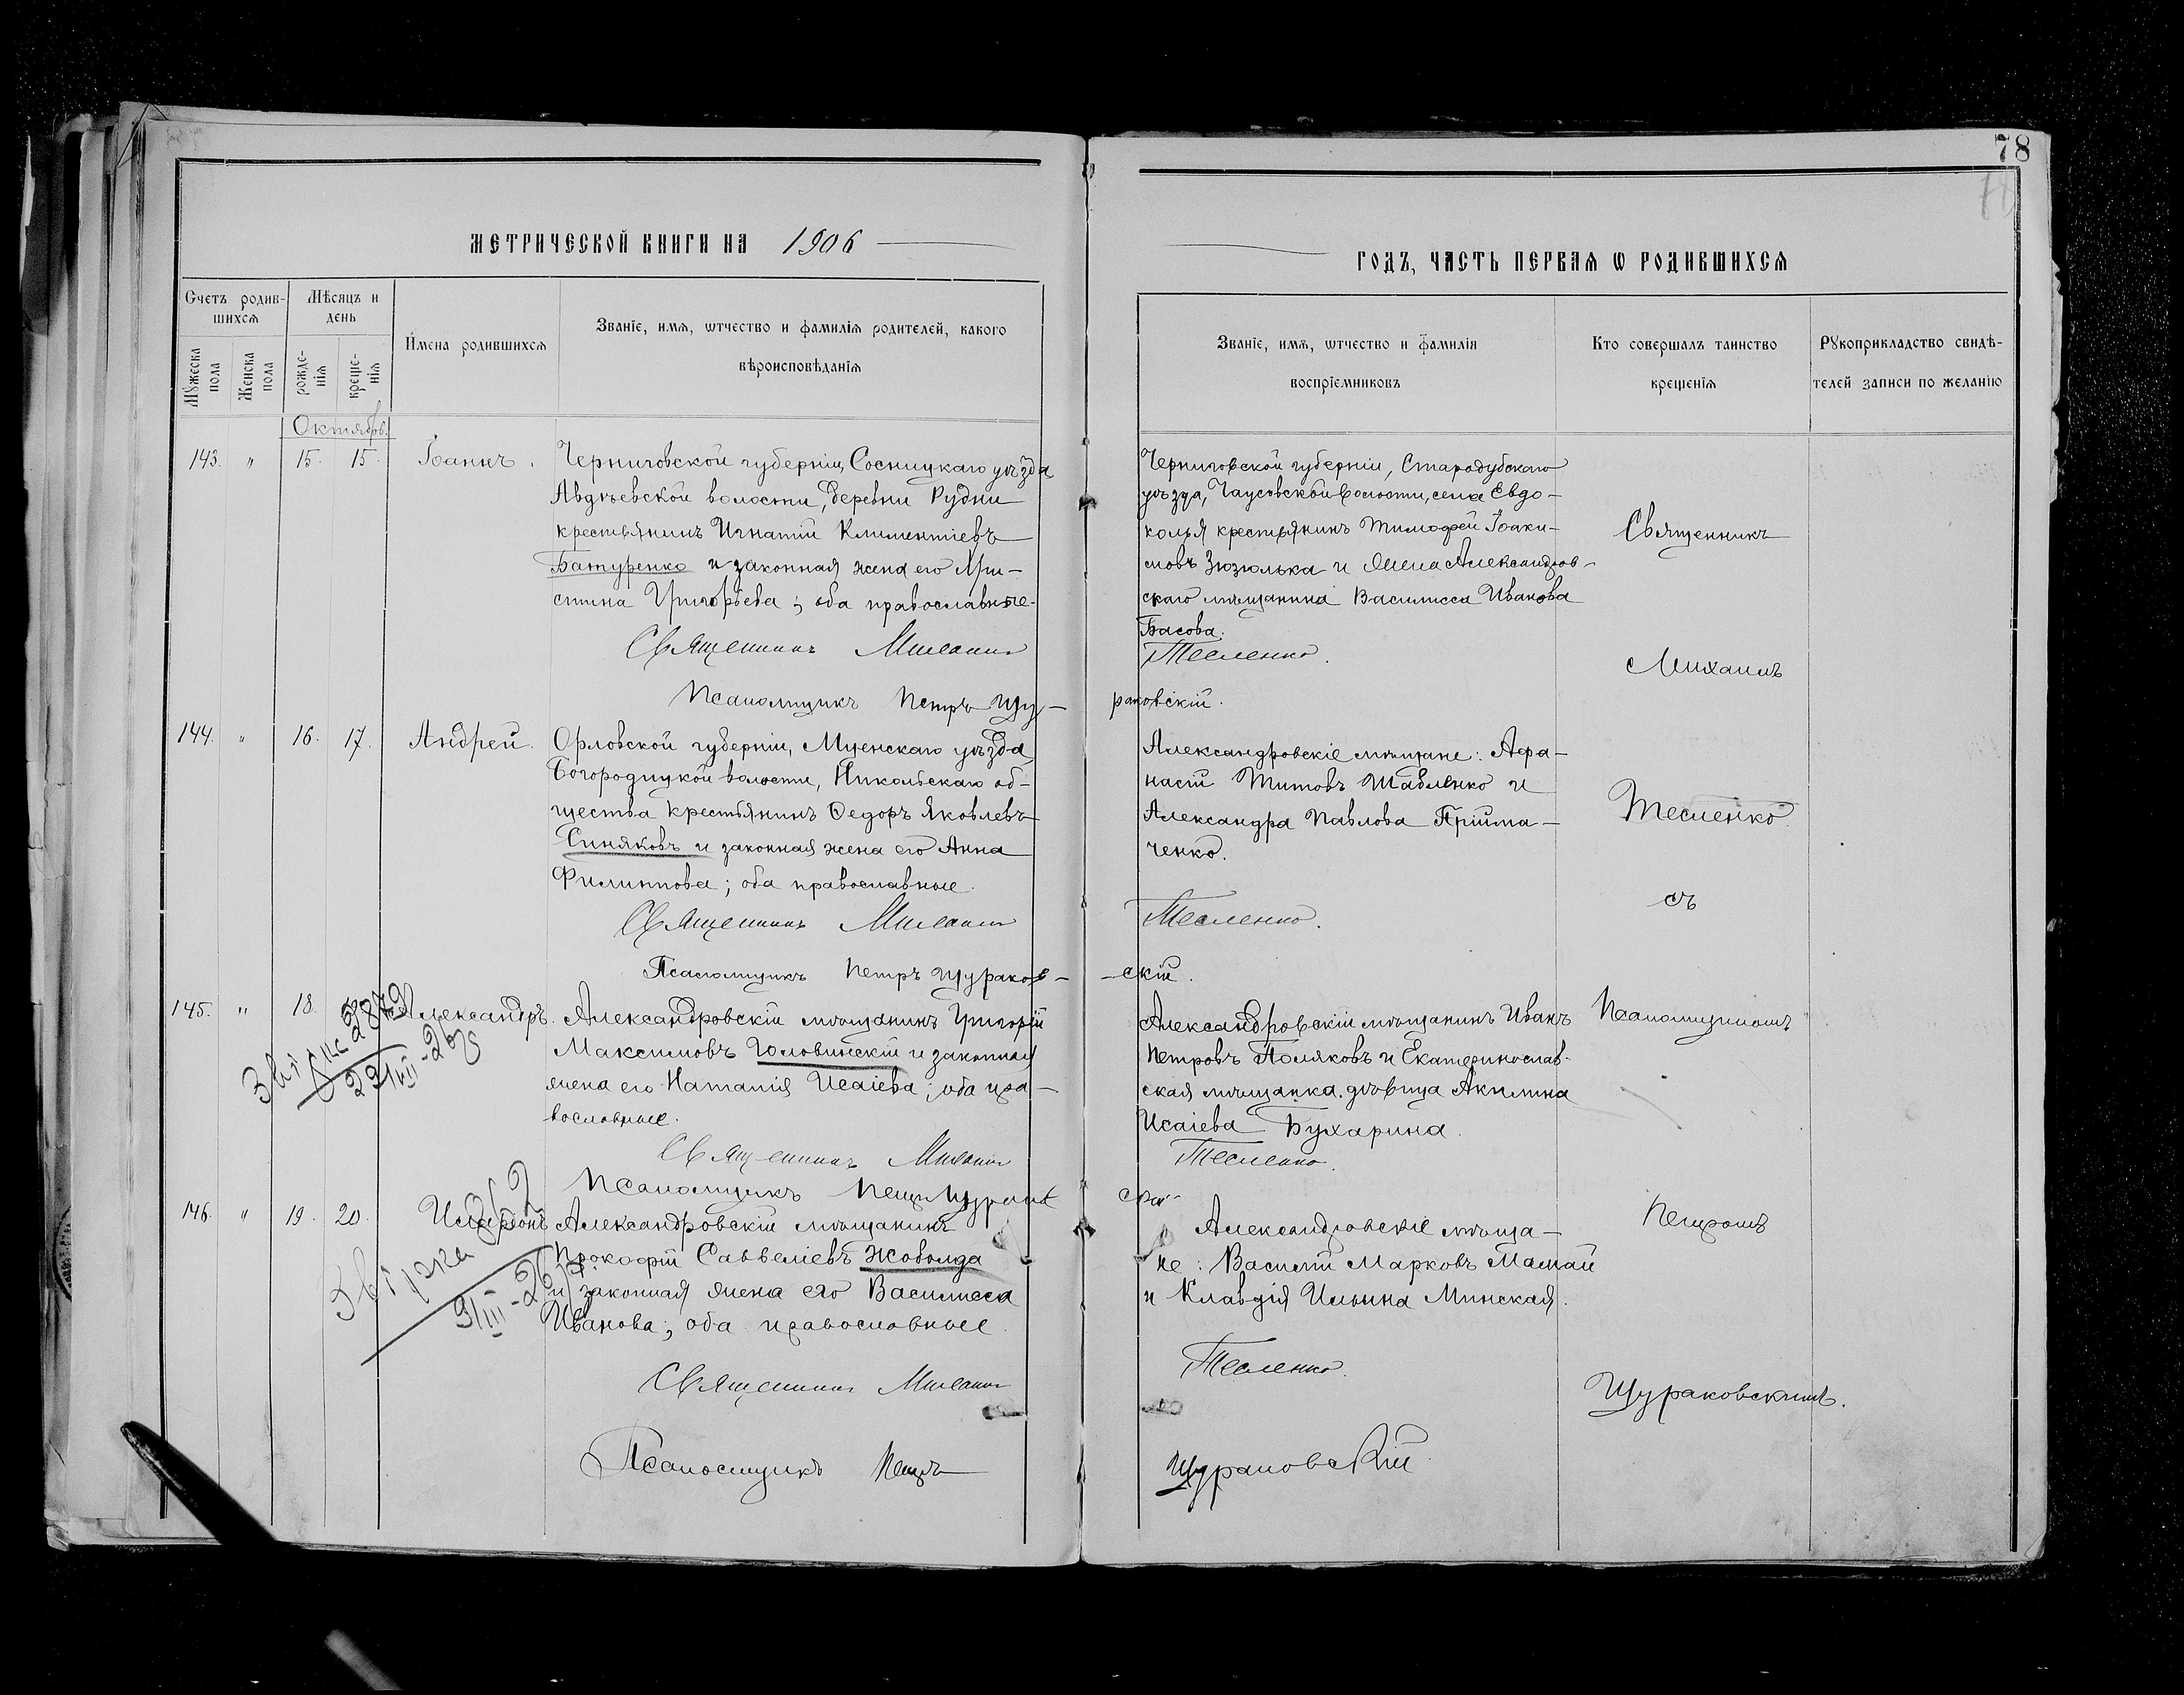 78
МЕТРИЧЕСКОЙ КНИГИ НА 1906
ГОДЪ, ЧАСТЬ ПЕРВАЯ Ѡ РОДИВШИХСЯ
Счетъ родив-
шихся
Мѣсяцъ и
день
Мужеска пола
Женска пола
рожде-
нія
креще-
нія
Имена родившихся
Званіе, имя, ѡтчество и фамилія родителей, какого
вѣроисповѣданія
Званіе, имя, ѡтчество и фамилія
воспріемниковъ
Кто совершалъ таинство
крещенія
Рукоприкладство свидѣ-
телей записи по желанію
Октябрь.
143. " 15. 15. Іоаннъ.
Черниговской губерніи, Сосницкаго уѣзда
Авдѣевской волости, деревни Рудни
крестьянинъ Игнатій Климентіевъ
Батуренко и законная жена его Хри-
стина Григорьева; оба православные.
Священникъ Михаилъ
Псаломщикъ Петръ Щу-
Черниговской губерніи, Стародубскаго
уѣзда, Чаусовской волости, села Евдо-
колья крестьянинъ Тимофей Іоаки-
мовъ Зюзюлька и жена Александров-
скаго мѣщанина Василисса Иванова
Басова.
Тесленко.
раковскій.
144. " 16. 17. Андрей.
Орловской губерніи, Мценскаго уѣзда,
Богородицкой волости, Никольскаго об-
щества крестьянинъ Ѳедоръ Яковлевъ
Синяковъ и законная жена его Анна
Филиппова; оба православные.
Священникъ Михаилъ
Псаломщикъ Петръ Щураков-
Александровскіе мѣщане: Афа-
насій Титовъ Шавленко и
Александра Павлова Прійма-
ченко.
Тесленко.
-скій.
145. " 18. Александръ.
Александровскій мѣщанинъ Григорій
Максимовъ Головинскій и законная
жена его Наталія Исаіева; оба пра-
вославные.
Священникъ Михаилъ
Псаломщикъ Петръ
Александровскій мѣщанинъ Иванъ
Петровъ Поляковъ и Екатеринослав-
ская мѣщанка, дѣвица Акилина
Исаіева Бухарина.
Тесленко.
146. " 19. 20.
Александровскій мѣщанинъ
Прокофій Саввеліевъ Жоволда
и законная жена его Василисса
Иванова; оба православные.
Священникъ Михаилъ
Псаломщикъ Петръ
Александровскіе мѣща-
не: Василій Марковъ Мамай
и Клавдія Ильина Минская.
Тесленко.
Щураковскій.
Священникъ
Михаилъ
Тесленко
съ
Псаломщикомъ
Петромъ
Щураковскимъ.
Звірка